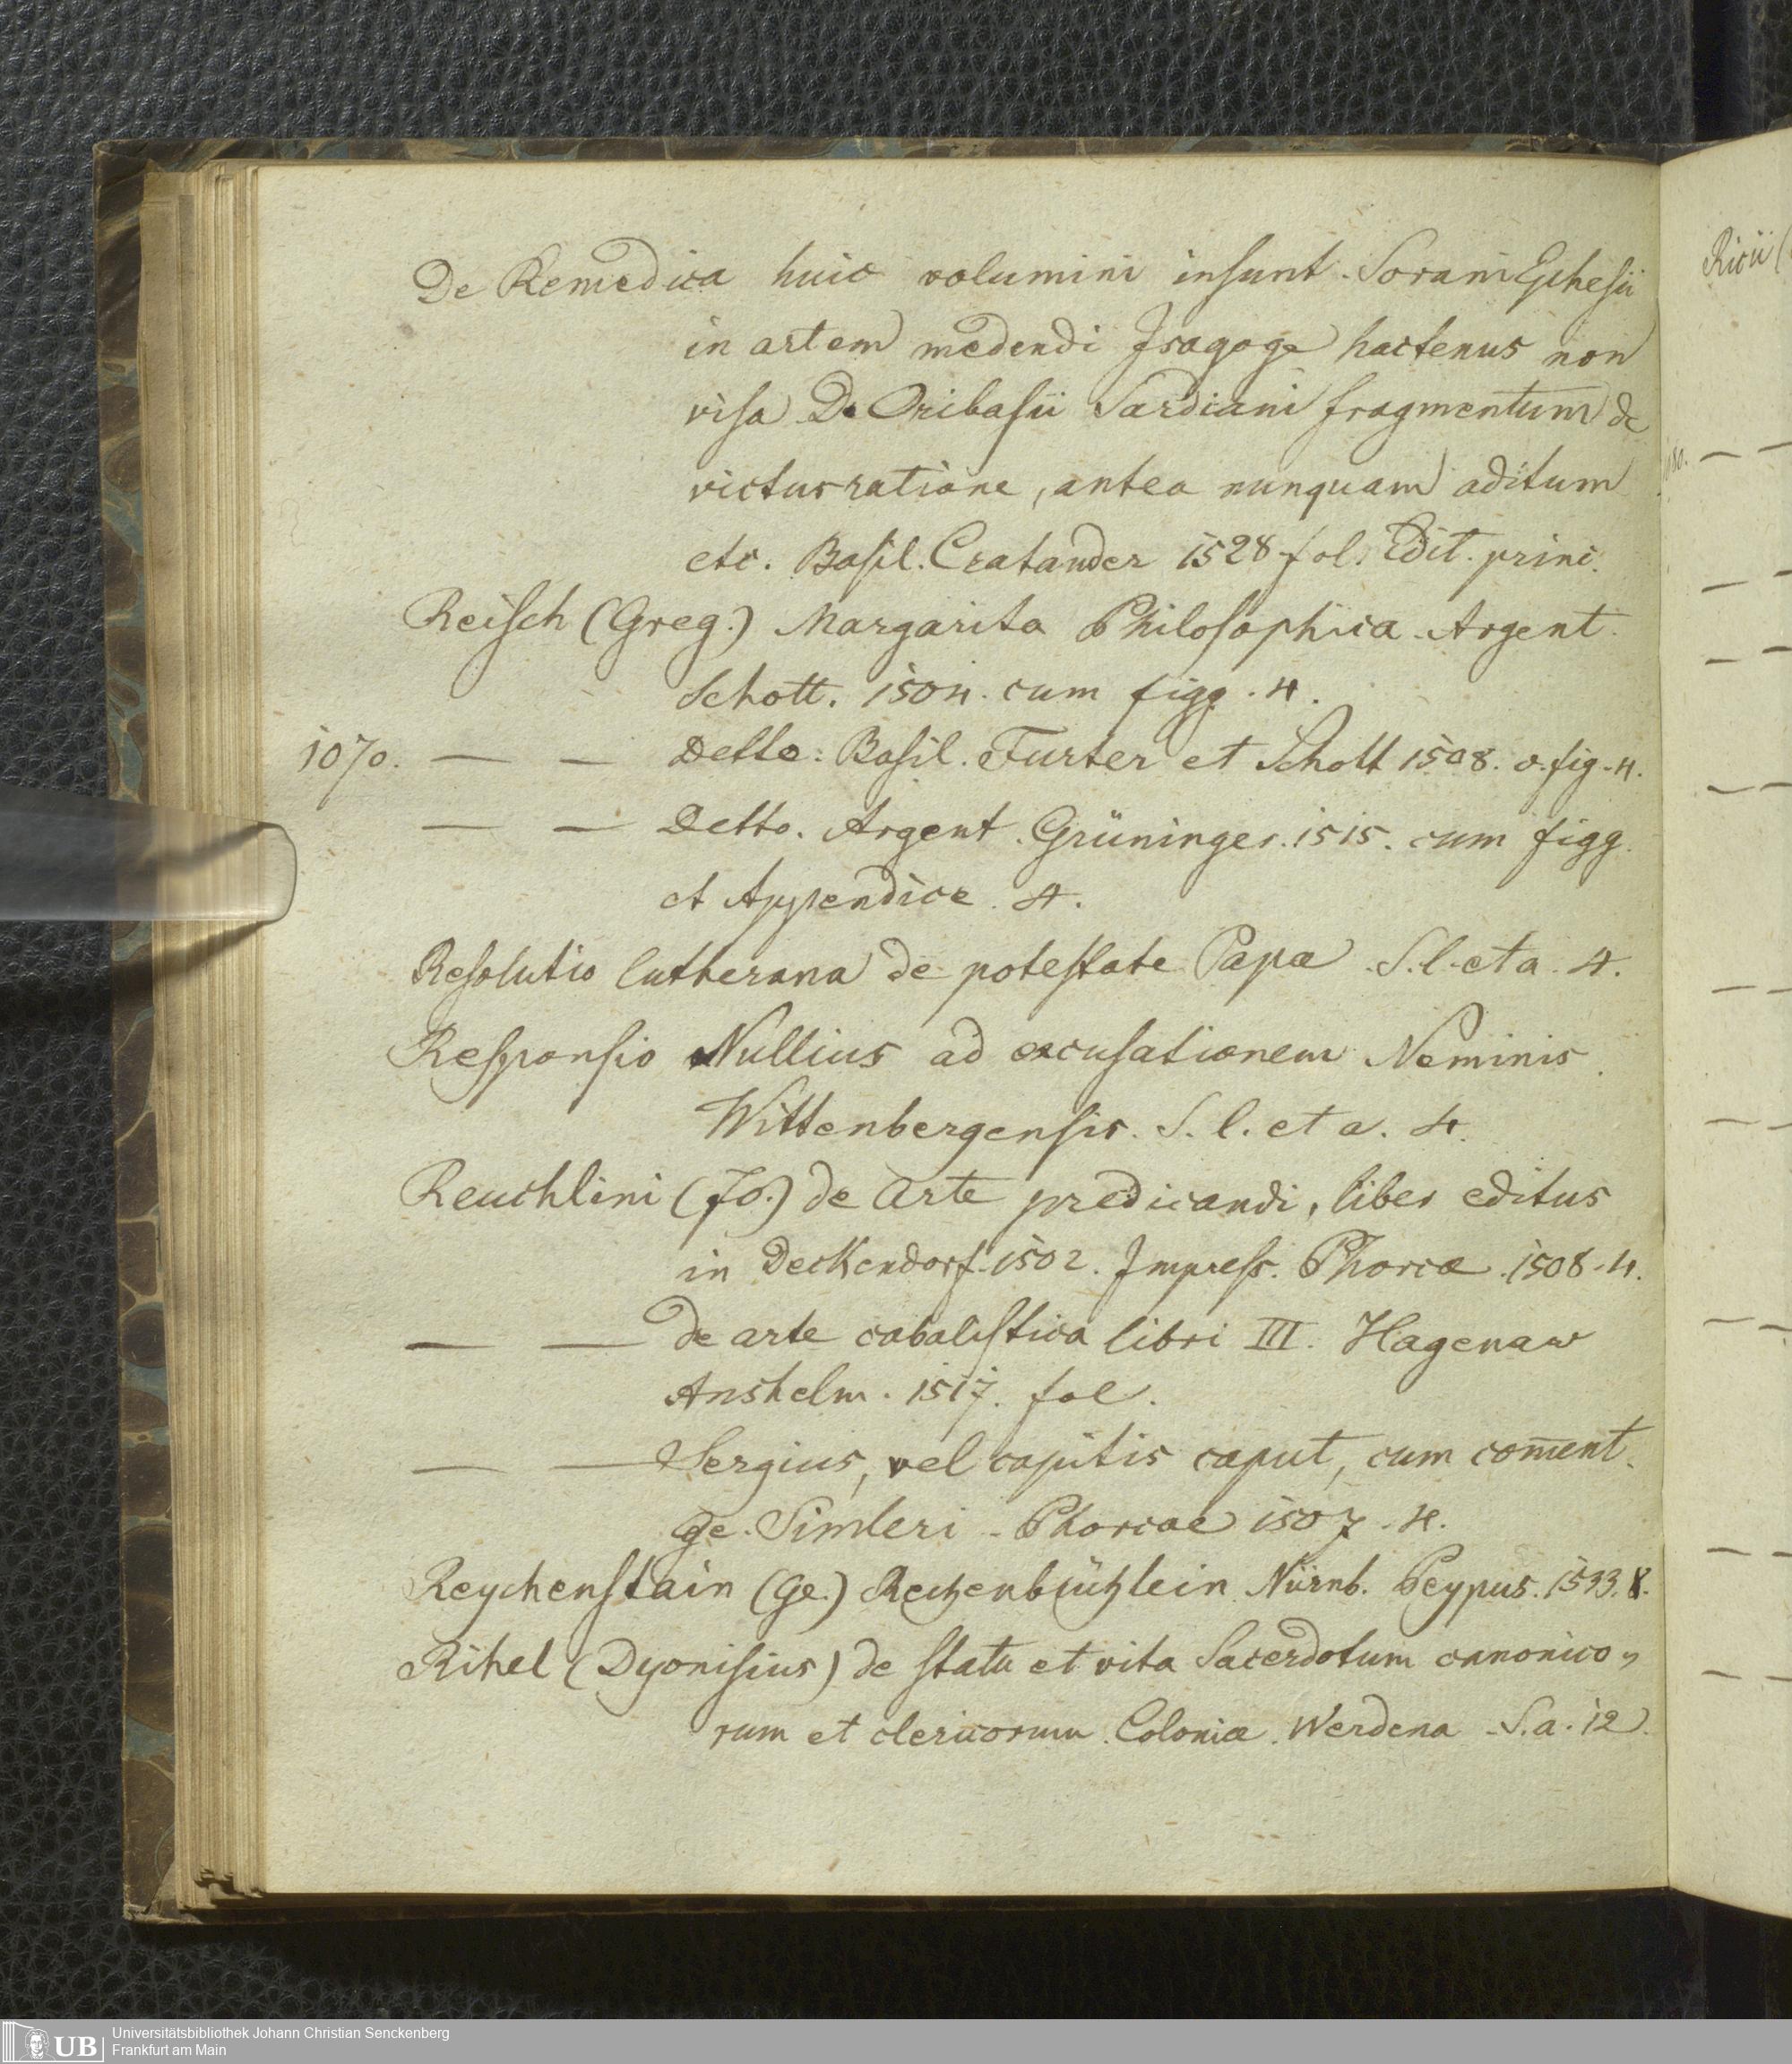 De Remedica huic volumini insunt. Sorani Ephesii
in artem medendi Isagoge hactenus non
visa D. Oribasii Sardiani fragmentum de
victusratione, antea nunquam aditum
etc. Basil. Cratander 1528 fol. Edit. princ.
Reisch (Greg.) Margarita Philosophica. Argent.
Schott. 1504. cum figg. 4.
1070. — — Detto: Basil. Furter et Schott 1508. c. fig. 4.
— — Detto. Argent. Grüninger. 1515. cum figg.
et Appendice. 4.
Resolutio lutherana de potestate Papæ. S. l. et a. 4.
Responsio Nullius ad excusationem Neminis
Wittenbergensis. S. l. et a. 4.
Reuchlini (Jo.) de arte predicandi, liber editus
in Deckendorf. 1502. Impress. Phorcæ. 1508. 4.
— — de arte cabalistica libri III. Hagenaw
Anshelm. 1517. fol.
— — Sergius, vel capitis caput, cum com̄ent.
Ge. Simleri. Phorcae 1507. 4.
Reychenstain (Ge.) Rechenbüchlein Nürnb. Peypus. 1533. 8.
Rihel (Dyonisius) de statu et vita Sacerdotum canonico„
rum et clericorum. Coloniæ. Werdena. S. a. 12.
Ricii (
UB
Universitätsbibliothek Johann Christian Senckenberg
Frankfurt am Main